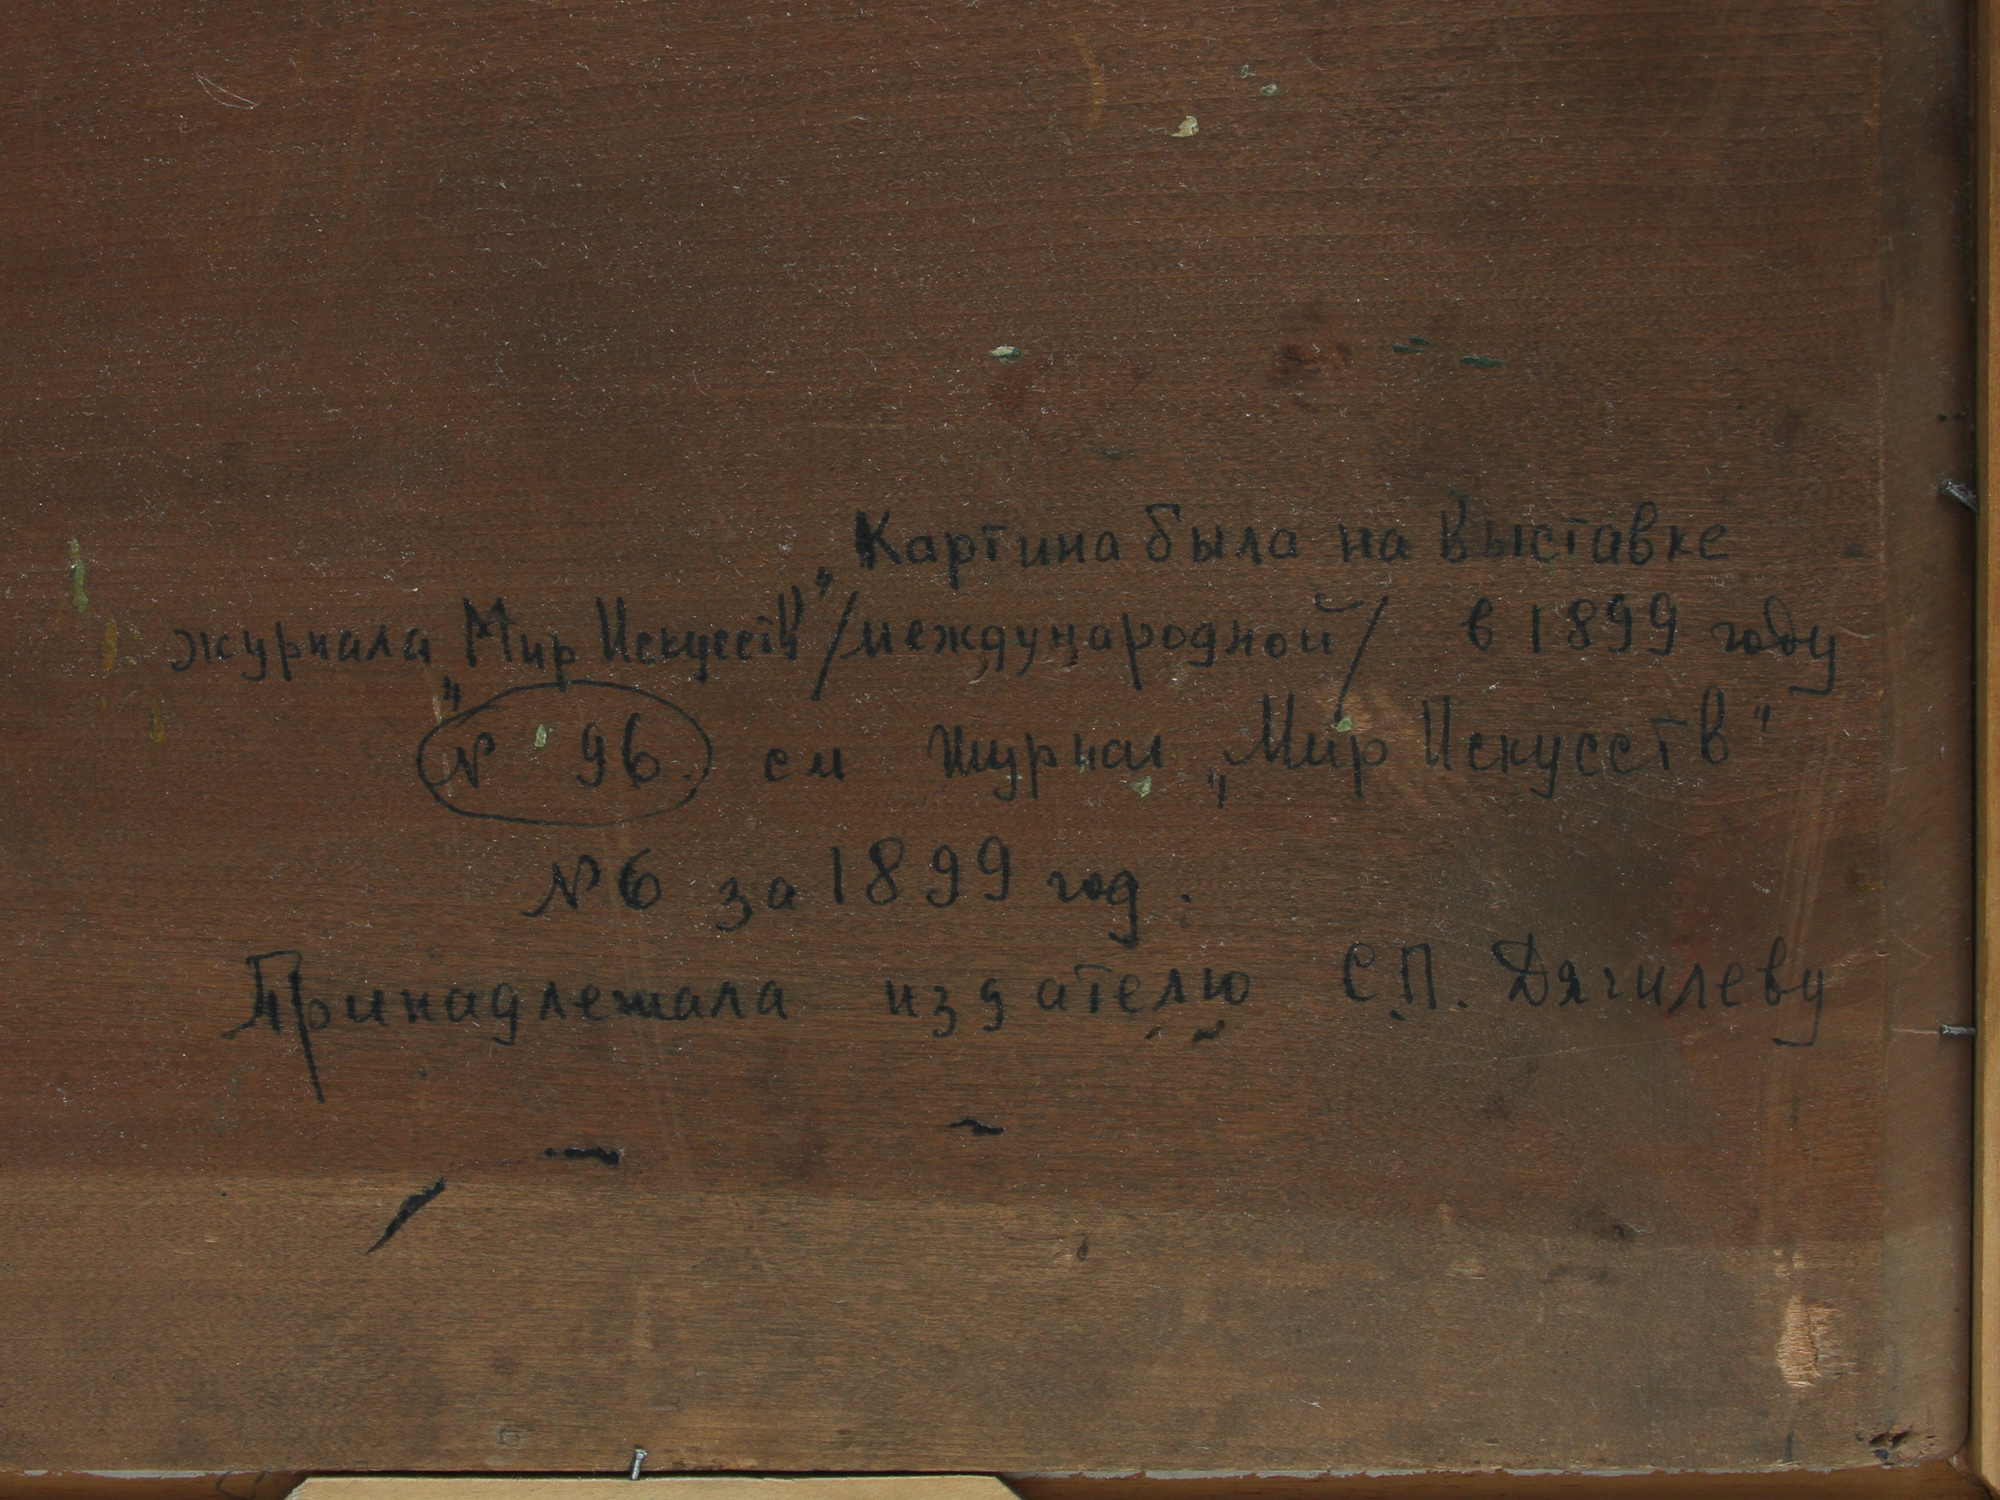 Картина была на Выставке
журнала „Мир Искусств" /международной/ в 1899 году
N 96. см Журнал „Мир Искусств"
N 6 за 1899 год.
Принадлежала издателю С.П. Дягилеву